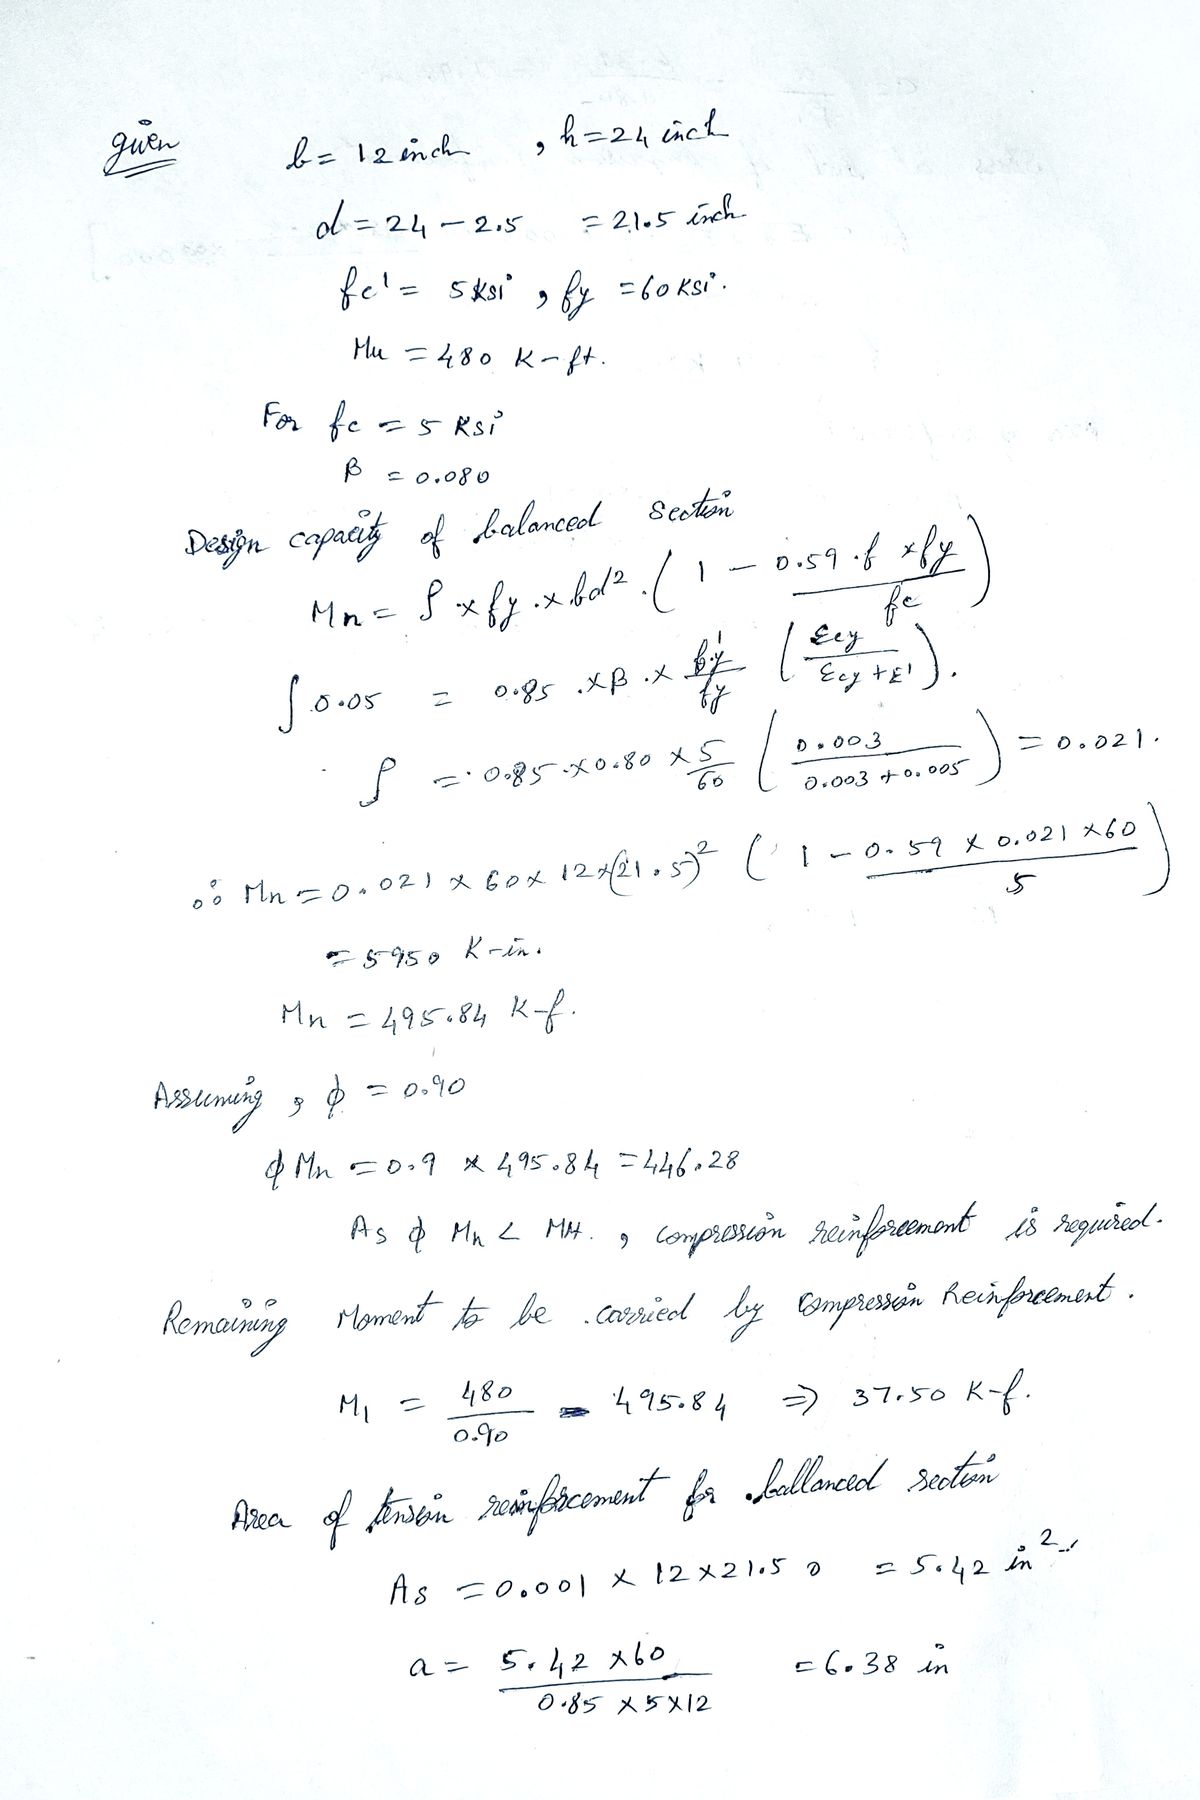 given
b = 12 inch , h = 24 inch
d = 24 - 2.5 = 21.5 inch
fc' = 5 ksi , fy = 60 KSi.
Mu = 480 K-ft.
For fc = 5 KSi
β = 0.080
Design capacity of balanced section
Mn = ρ × fy . × bd² . ( 1 - 0.59 . f × fy / fc )
∫ 0.05 = 0.85 . × β . × / fy ( Ecy / Ecy + E' ) .
ρ = 0.85 × 0.80 × 5/60 ( 0.003 / 0.003 + 0.005 ) = 0.021.
∴ Mn = 0.021 × 60 × 12 × (21.5)² ( 1 - 0.59 × 0.021 × 60 / 5 )
= 5950 K-in.
Mn = 495.84 K-f.
Assuming , ϕ = 0.90
ϕ Mn = 0.9 × 495.84 = 446.28
As ϕ Mn < . , compression reinforcement is required.
Remaining Moment to be carried by compression Reinforcement .
M1 = 480 / 0.90 - 495.84 ⇒ 37.50 K-f.
Area of tension reinforcement for ballanced section
As = 0.001 × 12 × 21.5 0 = 5.42 in²
a = 5.42 × 60 / 0.85 × 5 × 12 = 6.38 in